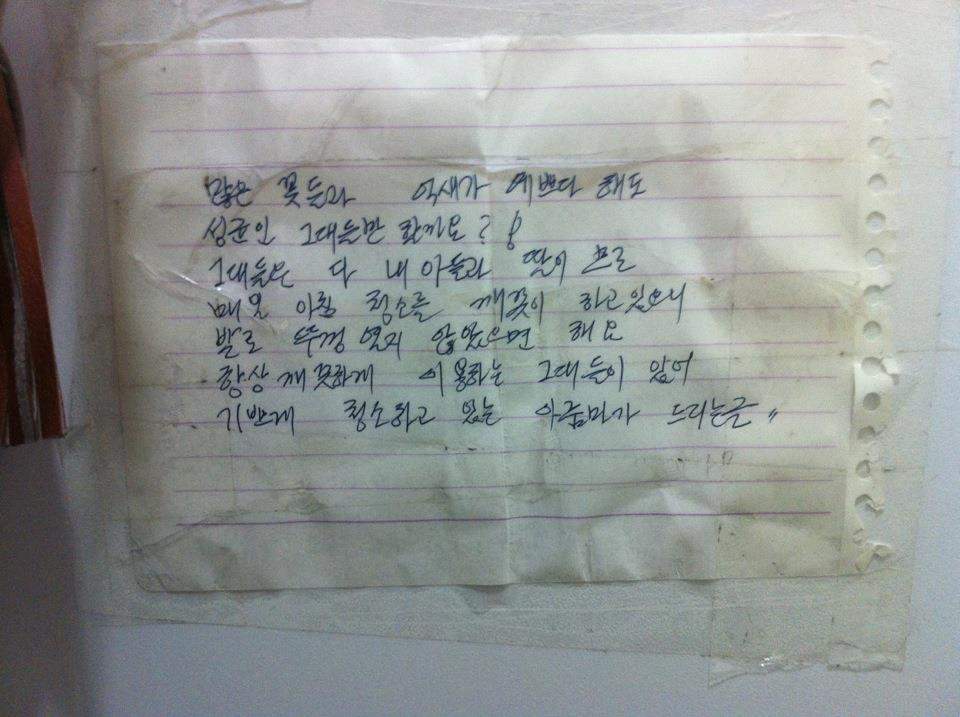 많은 꽃들과 억새가 예쁘다 해도
성균인 그대들만 할까요?!
그대들은 다 내 아들과 딸이므로
매일 아침 청소를 깨끗이 하고 있으니
발로 뚜껑 열지 않았으면 해요
항상 깨끗하게 이용하는 그대들이 있어
기쁘게 청소하고 있는 아줌마가 드리는글"